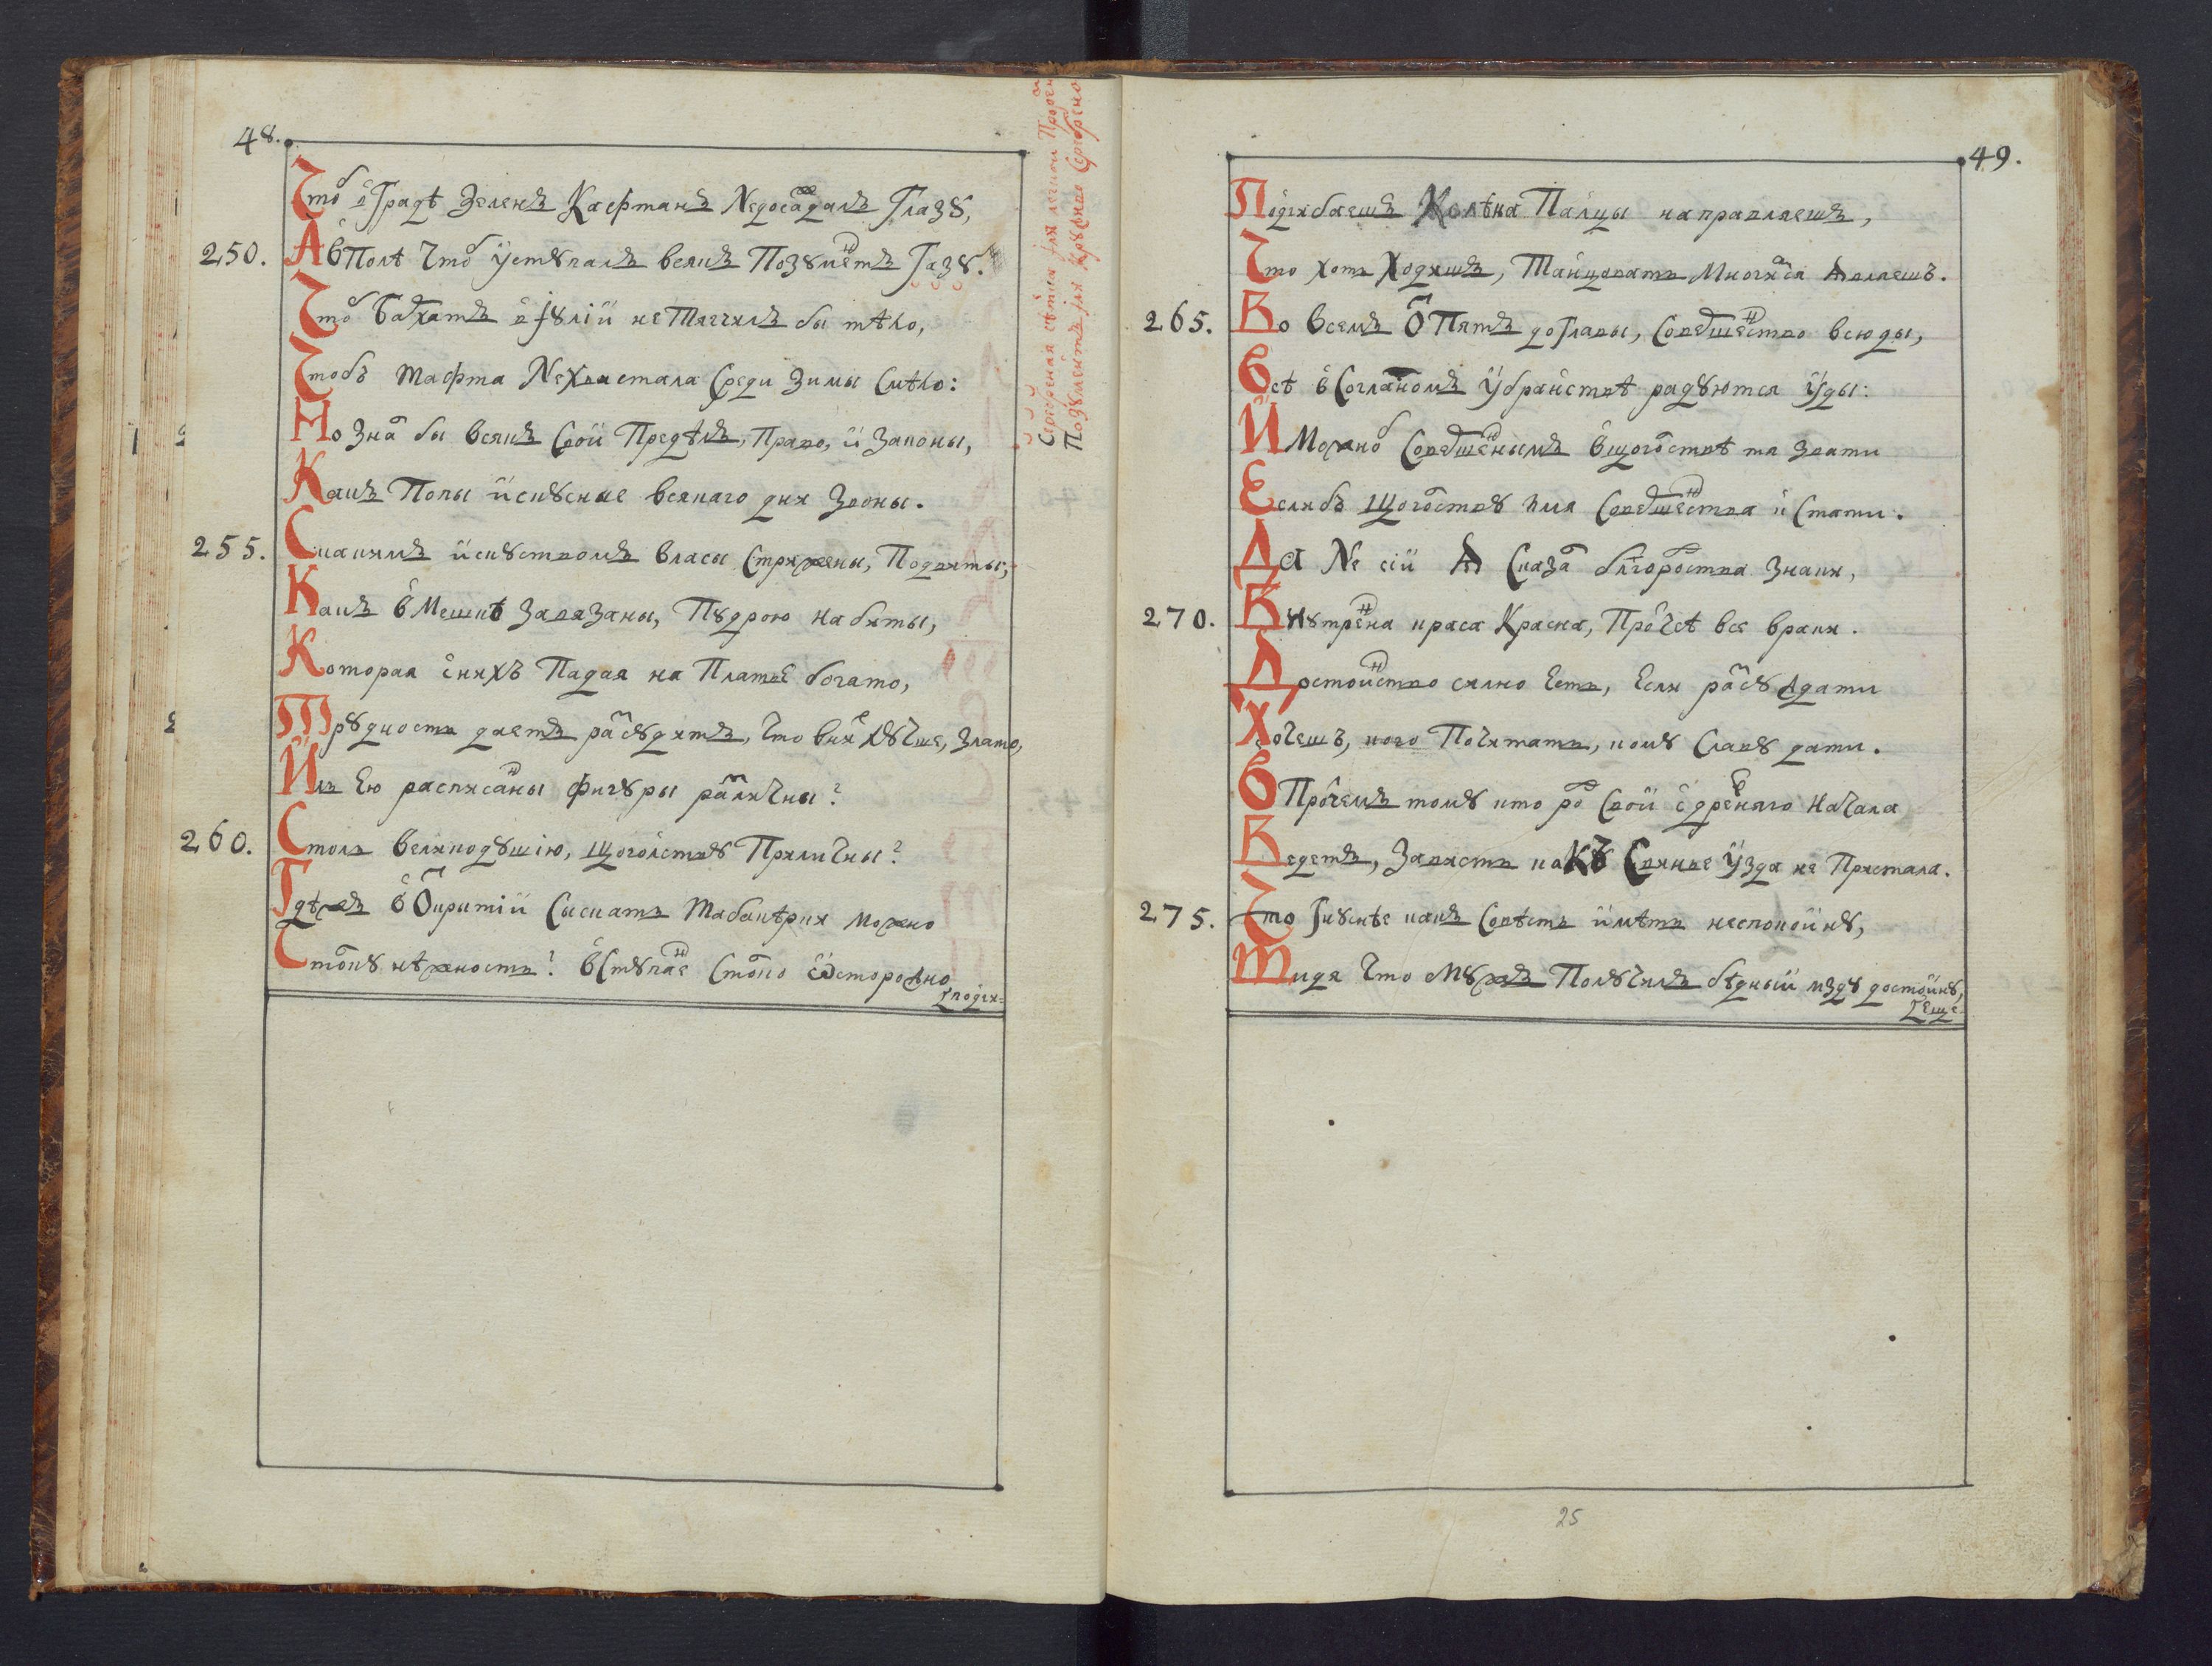 48.
Чтоб в Градѣ Зеленъ Кафтанъ Nедосаждалъ Глазꙋ,
250. А вПолѣ Чтоб Ꙋстꙋпалъ всякъ Позꙋментъ Газꙋ.
Чтоб Бархатъ в Iꙋлїи не Тягчилъ бы тѣло,
Чтобъ тафта Nехвастала Среди Зимы Смѣло:
Но Зналъ бы всякъ Свой Предѣлъ, Право, и Законы,
Какъ Попы искꙋсные всякаго дня Звоны.
255. Сканимъ искꙋствомъ власы Стрижены, Подвиты,
Какъ вМешкѣ Завязаны, Пꙋдрою набиты,
Которая снихъ Падая на Платье богато,
Трꙋдность даетъ разсꙋдить, Что вней лꙋчше, Злато,
Иль Ею расписанны фигꙋры различны?
260. Столь великодꙋшїю, щогольствꙋ Приличны?
Гдѣжъ в Открытїи Сыскать Табакѣрки можно
Столькꙋ нѣжность? вСтꙋпанье Столько Ѡсторожно
подги-
Серебреная свѣтла для легкои
Позꙋментъ для крꙋжива Серебрено
49.
Подгибаешъ Колѣна Палцы направляешъ,
Что хоть Ходишъ, Танцовать Многижды желаешъ.
265. Во всемъ Ѿ Пятъ доГлавы, Совершенство всюды,
Всѣ вСогласномъ Ꙋбранствѣ радꙋются Ꙋды:
И Можноб Совершеннымъ вщогольствѣ тя Звати
Еслибъ щогольствꙋ имя Совершенства и Стати.
Да Nе сїи Сказал блгородства Знаки,
270. Внꙋтрення краса Красна, Прочѣ все враки.
Достоинство силно Есть, Если разсꙋждати
Хочешъ, кого Почитать, комꙋ Славꙋ дати.
В Прочемъ томꙋ кто род Свой с древняго начала
Ведетъ, Зависть какъ Свинье Ꙋзда не Пристала.
275. Что Гнꙋснѣе какъ Совѣсть имѣть неспокойнꙋ,
Видя Что мꙋжъ Полꙋчилъ бѣдный мздꙋ достойнꙋ,
Еще
25